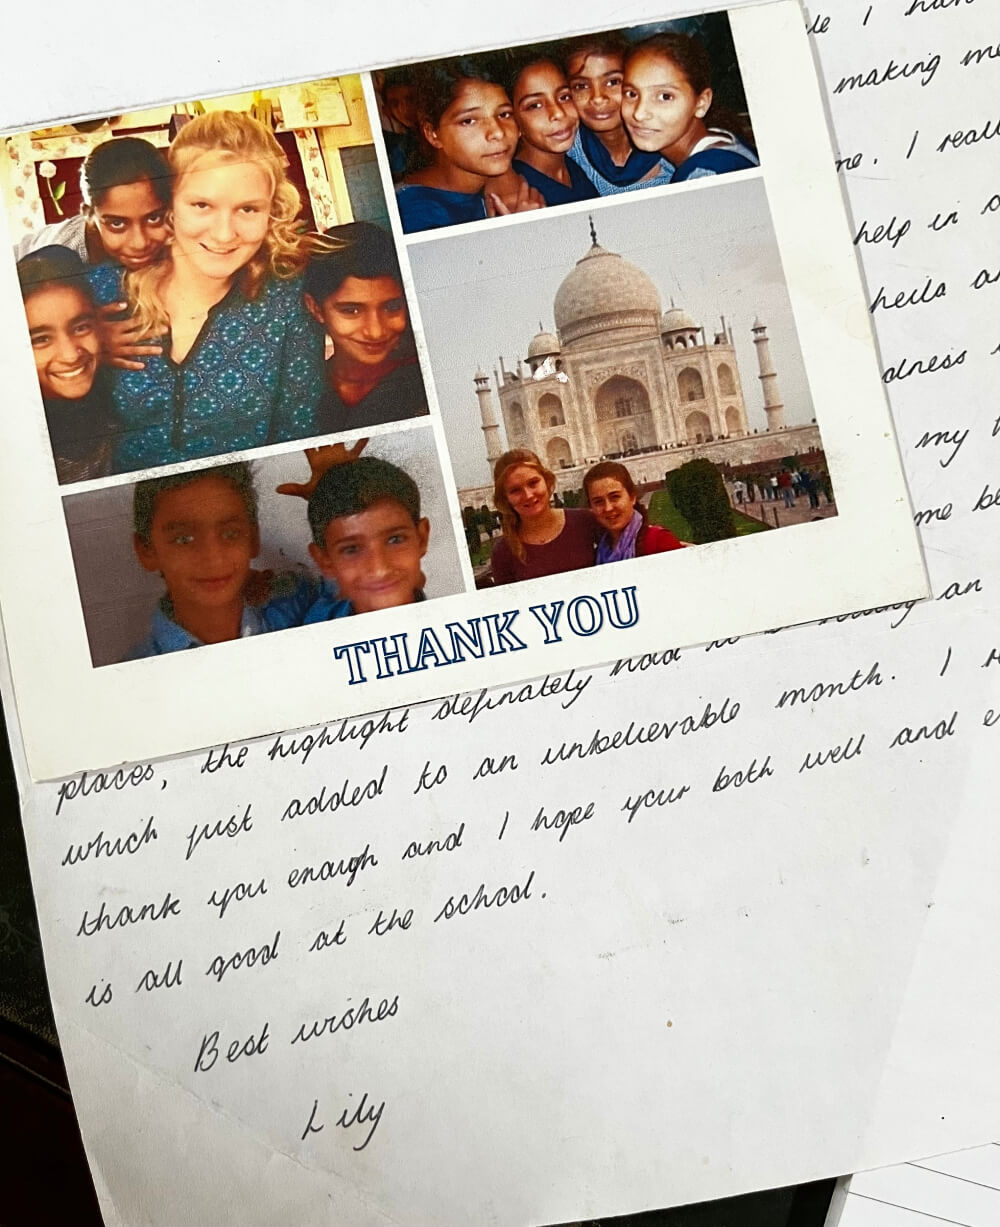 I
making me
I
help in
my
THANK YOU
an
places, the highlight definately had
which just added to an unbelievable month. I
thank you enough and I hope your both well and
is all good at the school.
Best wishes
Lily